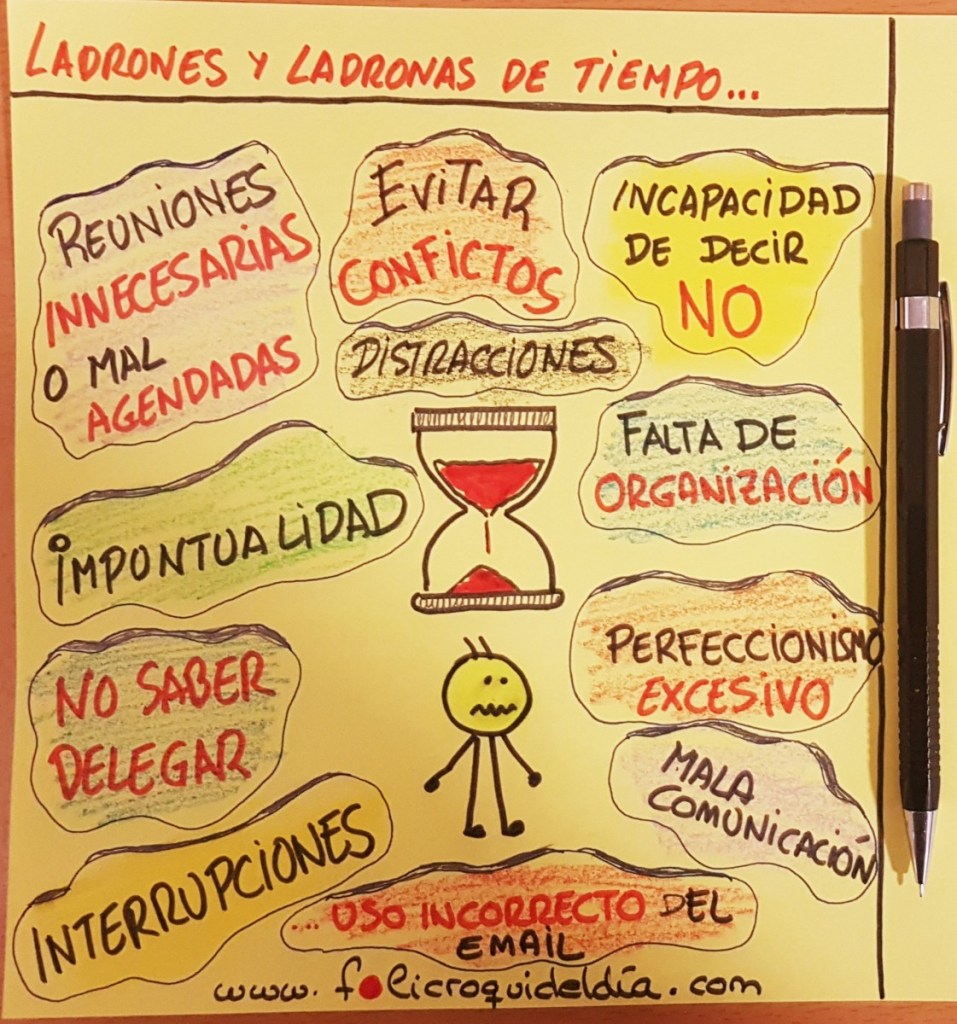 LADRONES Y LADRONAS DE TIEMPO...
REUNIONES
INNECESARIAS
O MAL
AGENDADAS
EVITAR
CONFICTOS
INCAPACIDAD
DE DECIR
NO
DISTRACCIONES
FALTA DE
ORGANIZACIÓN
IMPONTUALIDAD
PERFECCIONISMO
EXCESIVO
NO SABER
DELEGAR
MALA
COMUNICACIÓN
INTERRUPCIONES
... USO INCORRECTO DEL
EMAIL
www.folicroquideldía.com